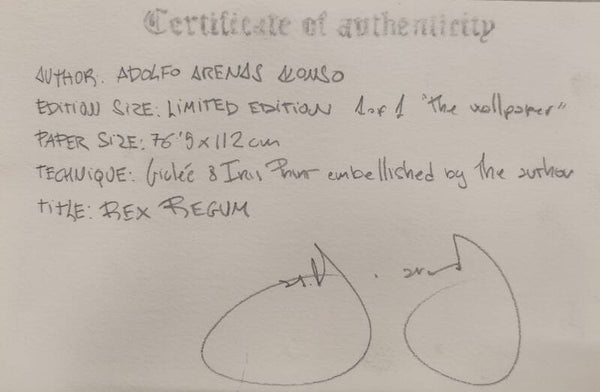 Certificate of authenticity
AUTHOR: ADOLFO ARENAS ALONSO
EDITION SIZE: LIMITED EDITION 1 of 1 "the wallpaper"
PAPER SIZE: 76'9 x 112 cm
TECHNIQUE: Giclée & Iris Print embellished by the author
TITLE: REX REGUM